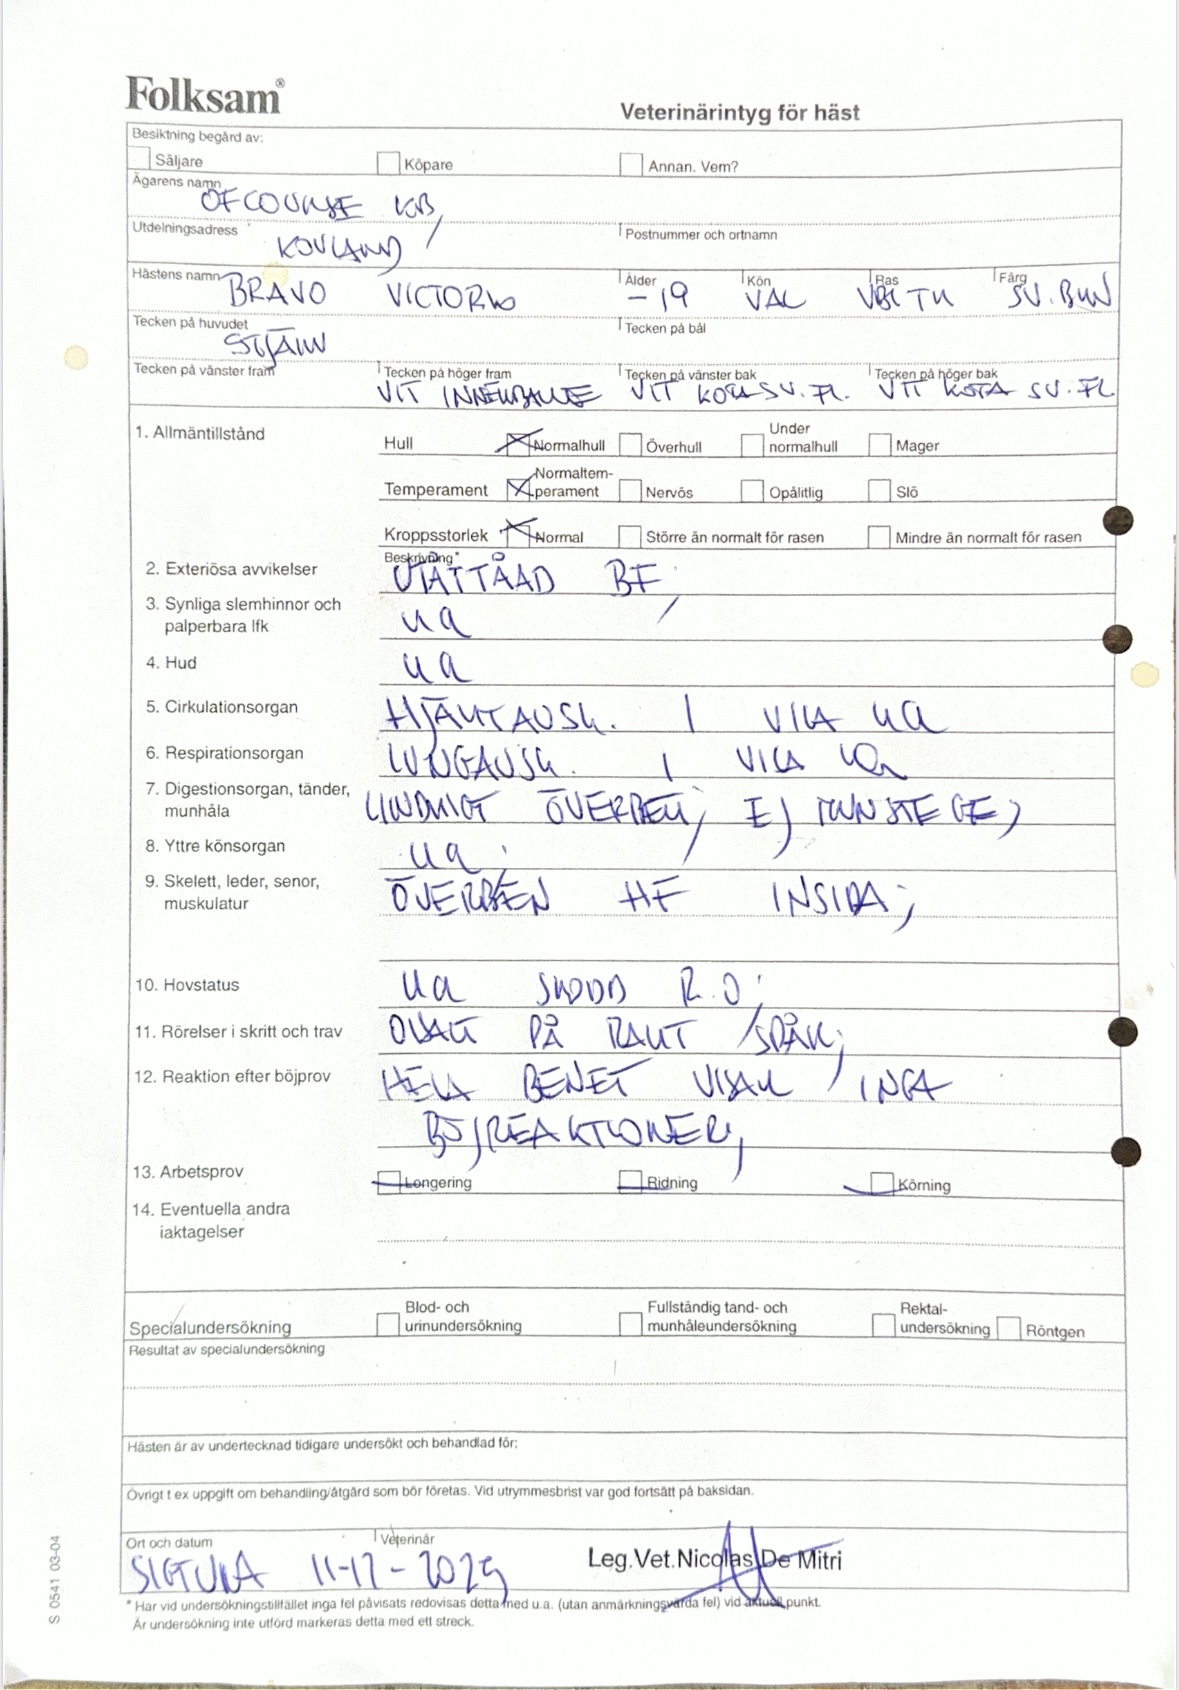 Folksam®
Veterinärintyg för häst
Besiktning begärd av:
Säljare Köpare Annan. Vem?
Ägarens namn
OFCOURSE KB,
Utdelningsadress Postnummer och ortnamn
KOVLAND
Hästens namn Ålder Kön Ras Färg
BRAVO VICTORIO -19 VAL VBL TR SV. BRN
Tecken på huvudet Tecken på bål
STJÄRN
Tecken på vänster fram Tecken på höger fram Tecken på vänster bak Tecken på höger bak
VIT INNERBALLE VIT KOTA SV. FL. VIT KOTA SV. FL
1. Allmäntillstånd
Hull Normalhull Överhull Under normalhull Mager
Temperament Normaltem-perament Nervös Opålitlig Slö
Kroppsstorlek Normal Större än normalt för rasen Mindre än normalt för rasen
Beskrivning*
2. Exteriösa avvikelser UTÅTTÅAD BF,
3. Synliga slemhinnor och
palperbara lfk ua
4. Hud ua
5. Cirkulationsorgan HJÄRTAUSK. I VILA ua
6. Respirationsorgan LUNGAUSK. I VILA ua
7. Digestionsorgan, tänder,
munhåla LINDRIGT ÖVERBETT, EJ
8. Yttre könsorgan ua
9. Skelett, leder, senor,
muskulatur ÖVERBEN HF INSIDA;
10. Hovstatus ua SKODD R.O;
11. Rörelser i skritt och trav PÅ RAKT SPÅR;
12. Reaktion efter böjprov HELA BENET VISAR INGA
BÖJREAKTIONER,
13. Arbetsprov Longering Ridning Körning
14. Eventuella andra
iaktagelser
Specialundersökning Blod- och urinundersökning Fullständig tand- och munhåleundersökning Rektal-undersökning Röntgen
Resultat av specialundersökning
Hästen är av undertecknad tidigare undersökt och behandlad för:
Övrigt t ex uppgift om behandling/åtgärd som bör företas. Vid utrymmesbrist var god fortsätt på baksidan.
Ort och datum Veterinär
SIGTUNA 11-12-2025 Leg.Vet.Nicolas De Mitri
* Har vid undersökningstillfället inga fel påvisats redovisas detta med u.a. (utan anmärkningsvärda fel) vid aktuell punkt.
Är undersökning inte utförd markeras detta med ett streck.
S 0541 03-04